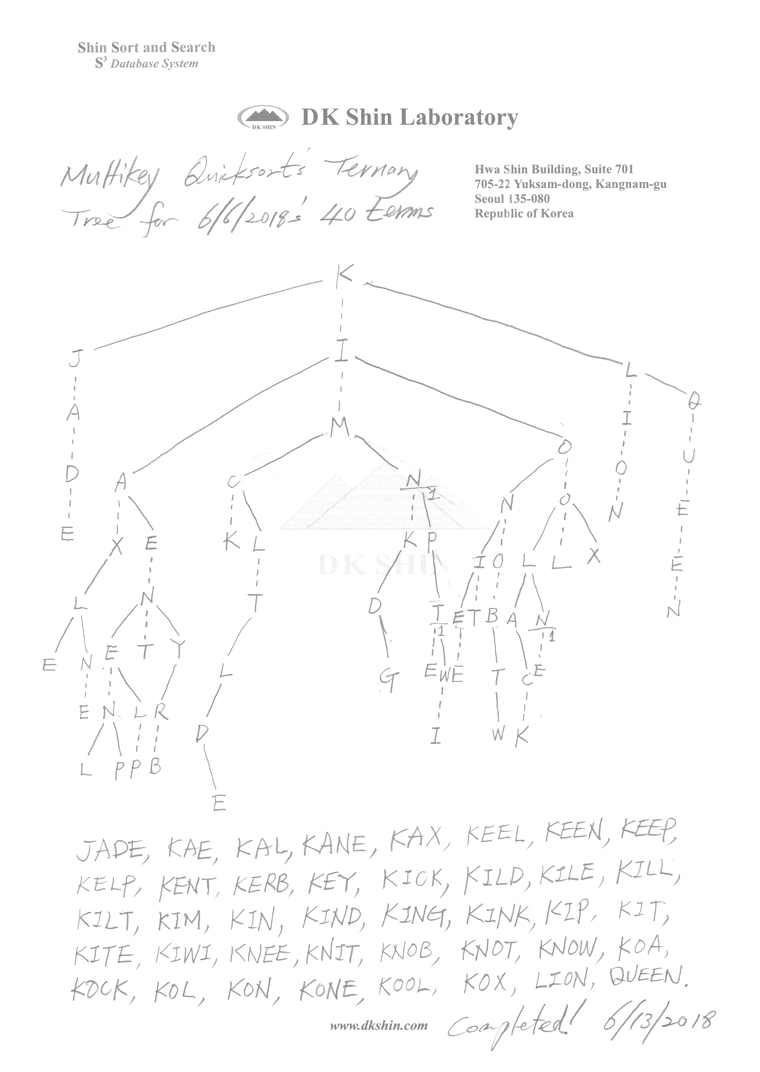 Shin Sort and Search
S³ Database System
DK SHIN
DK Shin Laboratory
Multikey Quicksort's Ternary
Tree for 6/6/2018's 40 terms
Hwa Shin Building, Suite 701
705-22 Yuksam-dong, Kangnam-gu
Seoul 135-080
Republic of Korea
K
J I L Q
A M O I U
D A C N 1 N O O E
E X E K L K P I O L L X N E
L N T D T 1 E T B A N 1 N
E N E T Y L G E W E T C E
E N L R D I W K
L P P B E
DK SHIN
JADE, KAE, KAL, KANE, KAX, KEEL, KEEN, KEEP,
KELP, KENT, KERB, KEY, KICK, KILD, KILE, KILL,
KILT, KIM, KIN, KIND, KING, KINK, KIP, KIT,
KITE, KIWI, KNEE, KNIT, KNOB, KNOT, KNOW, KOA,
KOCK, KOL, KON, KONE, KOOL, KOX, LION, QUEEN.
www.dkshin.com
Completed! 6/13/2018